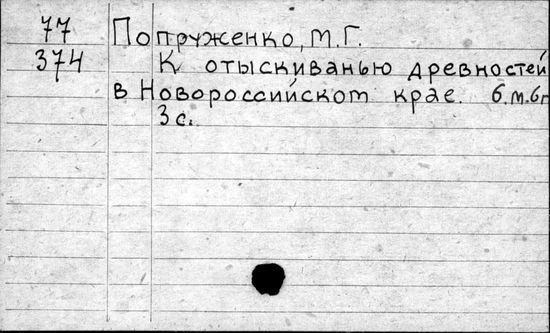 77 Попруженко, М.Г.
374 К отыскиванью древностей
в Новороссийском крае. б.м.бг
3 с.